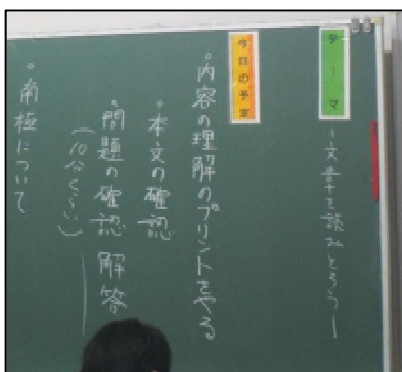 テーマ
ー文章を読みとろうー
今日の予定
・内容の理解のプリントをやる
・本文の確認
・問題の確認 解答
(10分くらい)
・南極について